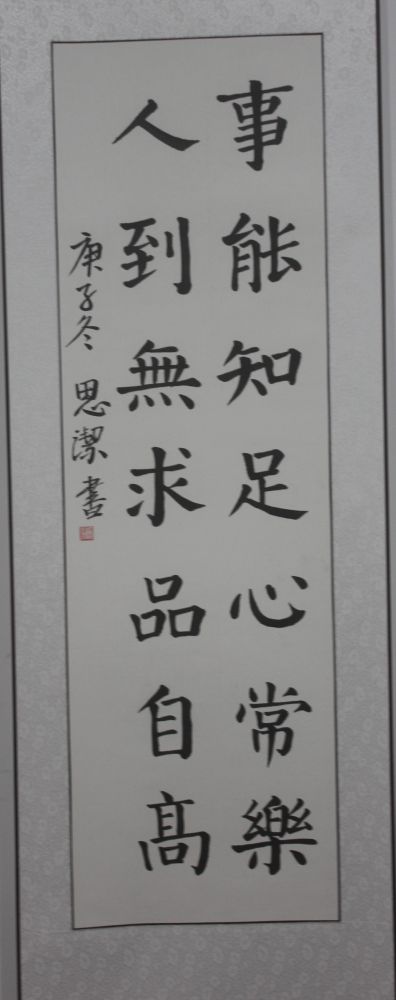 事能知足心常樂
人到無求品自高
庚子冬 思潔書